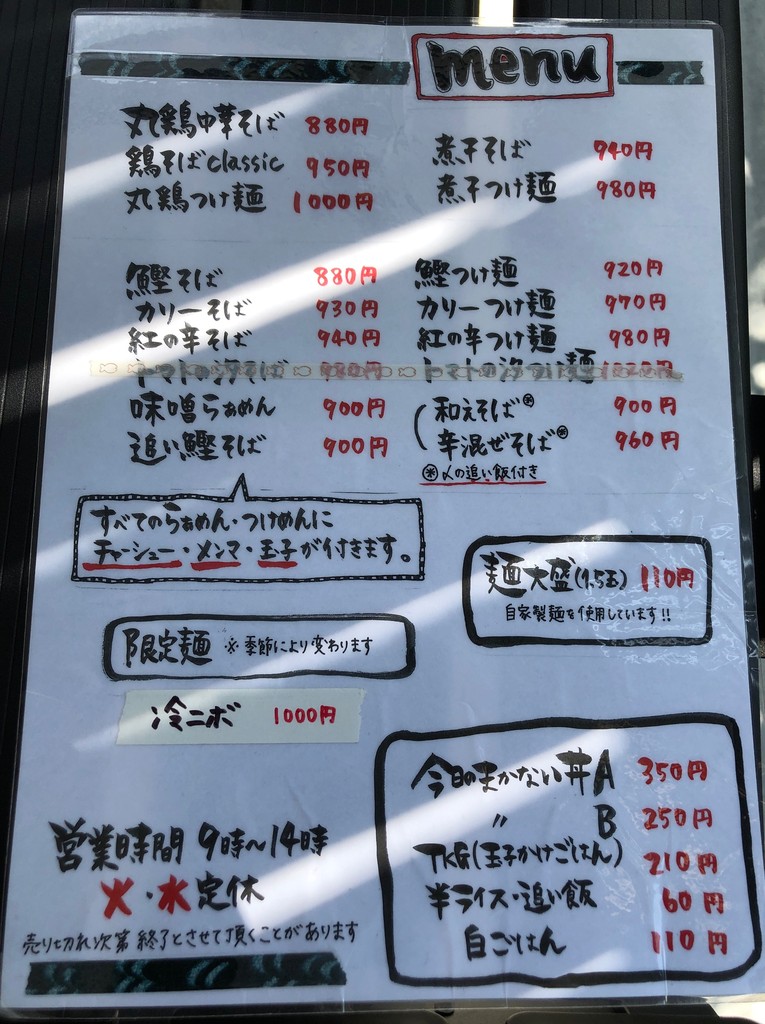 menu
丸鶏中華そば 880円
鶏そばclassic 950円
丸鶏つけ麺 1000円
煮干そば 940円
煮干つけ麺 980円
鰹そば 880円
カリーそば 930円
紅の辛そば 940円
トマトの汐そば
味噌らぁめん 900円
追い鰹そば 900円
鰹つけ麺 920円
カリーつけ麺 970円
紅の辛つけ麺 980円
トマトの汐つけ麺
和えそば※ 900円
辛混ぜそば※ 960円
※〆の追い飯付き
すべてのらぁめん・つけめんに
チャーシュー・メンマ・玉子が付きます。
麺大盛(1.5玉) 110円
自家製麺を使用しています!!
限定麺 ※季節により変わります
冷ニボ 1000円
今日のまかない丼A 350円
〃 B 250円
TKG(玉子かけごはん) 210円
半ライス・追い飯 60円
白ごはん 110円
営業時間 9時〜14時
火・水定休
売り切れ次第終了とさせて頂くことがあります